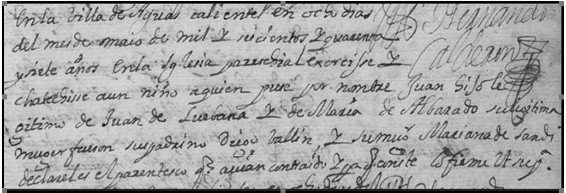 En la Villa de Aguas calientes en ocho dias
del mes de maio de mil y seicientos y quarenta
y siete años en la Yglesia parrochial Exorcise y
chatechise a un niño a quien puse por nombre Juan hijo le
gitimo de Juan de Luebana y de Maria de Albarado su legitima
muger fueron su padrino Diego ballin, y su mugr Mariana de Sandi
declareles el parentesco qe auian contraido y pa qe conste lo firme Ut supra.
Hernando
Calderon